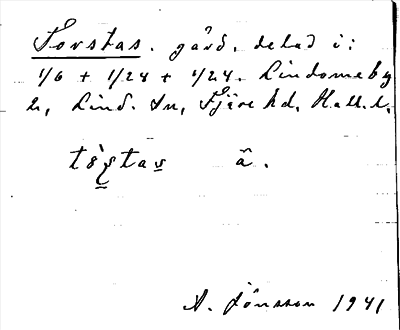 Torstas. gård, delad i:
1/6 + 1/24 + 1/24. Lindomeby
2, Lind. sn, Fjäre hd, Hall. l.
ä.
A. Jönsson 1941